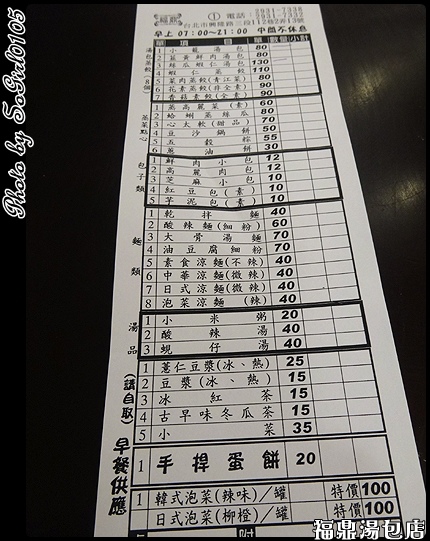 福鼎 ① 電話：2931-7338
2931-7332
台北市興隆路三段112巷2弄13號
早上 07:00~21:00 中間不休息
單 項目 單價 數量 小計
湯包蒸餃(8個)
1 小籠湯包 80
2 韭黃鮮肉湯包 80
3 絲瓜蝦仁湯包 130
4 蝦仁蒸餃 110
5 菜肉蒸餃(青江菜) 80
6 花素蒸餃(非全素) 90
7 香菇素餃(全素) 90
蒸菜點心
1 蒸高麗菜(素) 60
2 蛤蜊蒸絲瓜 80
3 心太軟(甜品) 70
4 豆沙鍋餅 50
5 五穀粽 55
6 蔥油餅 30
包子類
1 鮮肉小包 12
2 高麗肉包 12
3 芝麻小包 10
4 紅豆包(素) 10
5 芋泥包(素) 10
麵類
1 乾拌麵 40
2 酸辣麵(細粉) 60
3 大骨湯麵 70
4 油豆腐細粉 70
5 素食涼麵(不辣) 40
6 中華涼麵(微辣) 40
7 日式涼麵(微辣) 40
8 泡菜涼麵(辣) 40
湯品
1 小米粥 20
2 酸辣湯 40
3 蜆仔湯 40
(請自取)
1 薏仁豆漿(冰、熱) 25
2 豆漿(冰、熱) 15
3 冰紅茶 15
4 古早味冬瓜茶 15
5 小菜 35
早餐供應
1 手捍蛋餅 20
1 韓式泡菜(辣味)/罐 特價100
日式泡菜(柳橙)/罐 特價100
Photo by SoGirl0105
福鼎湯包店